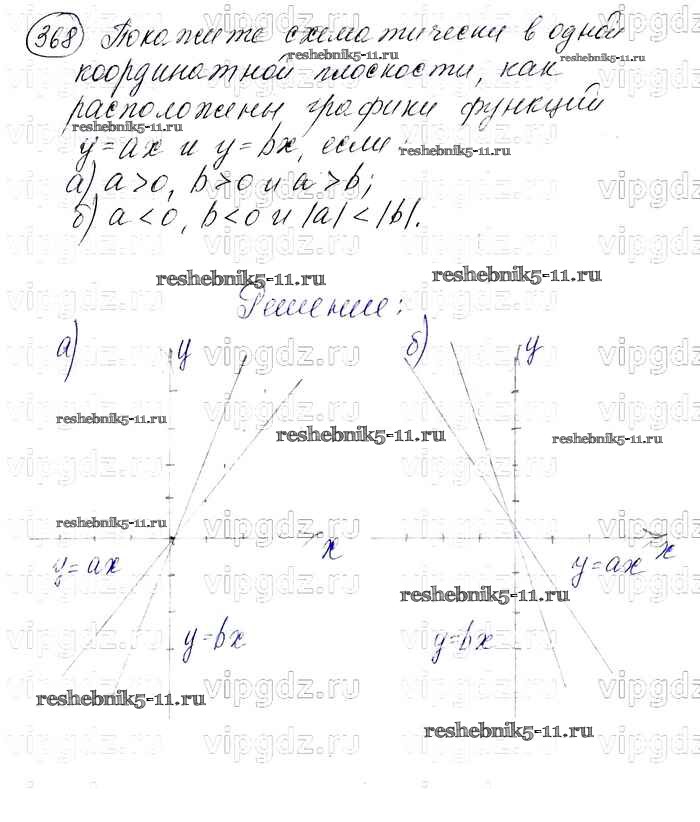 368 Покажите схематически в одной
координатной плоскости, как
расположены графики функций
y=ax и y=bx, если
а) a>0, b>0 и a>b;
б) a<0, b<0 и |a|<|b|.
reshebnik5-11.ru
reshebnik5-11.ru
reshebnik5-11.ru
reshebnik5-11.ru
reshebnik5-11.ru
Решение:
а) y
б) y
reshebnik5-11.ru
reshebnik5-11.ru
reshebnik5-11.ru
reshebnik5-11.ru
x
x
y=ax
y=ax
reshebnik5-11.ru
y=bx
y=bx
reshebnik5-11.ru
reshebnik5-11.ru
vipgdz.ru
vipgdz.ru
vipgdz.ru
vipgdz.ru